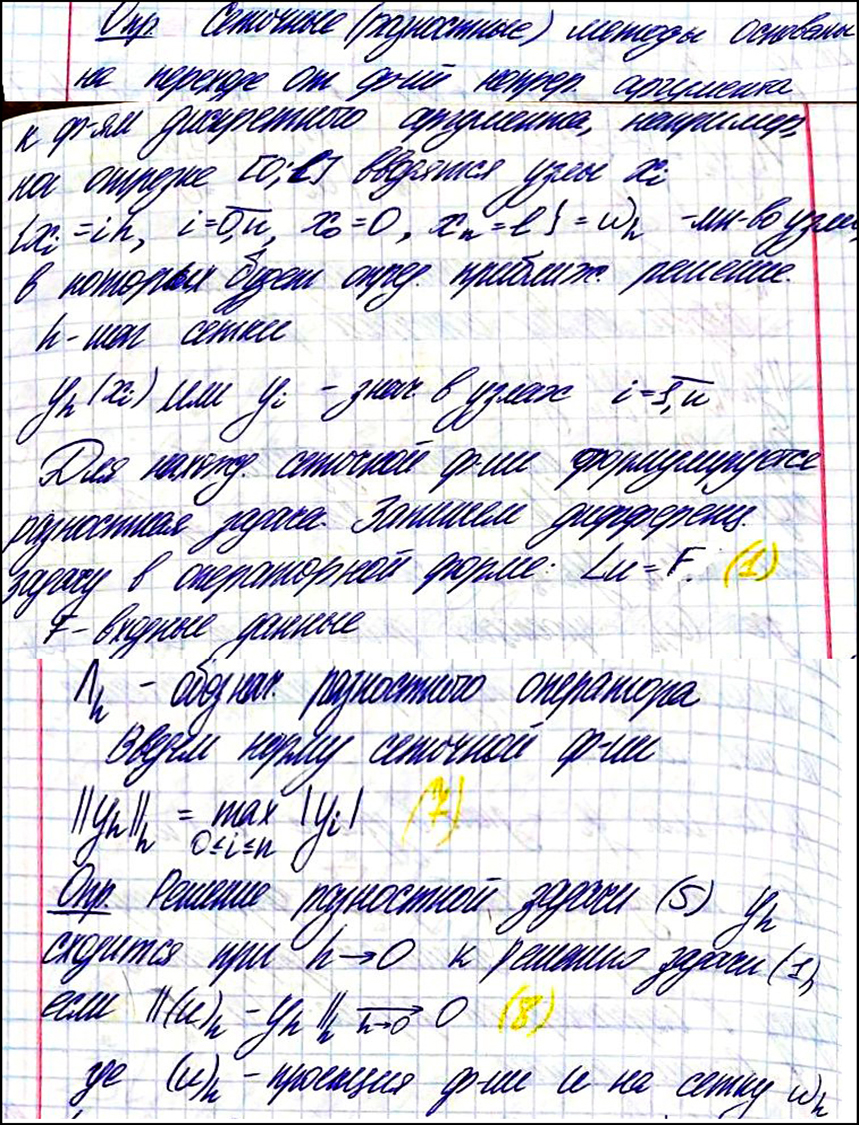 Опр. Сеточные (разностные) методы основаны
на переходе от ф-ий непрер. аргумента
к ф-ям дискретного аргумента, например,
на отрезке [0; l] вводятся узлы xᵢ
{xᵢ = ih, i = 0,n̅, x₀ = 0, xₙ = l} = ωₕ - мн-во узлов,
в которых будет опред. приближ. решение.
h - шаг сетки
yₕ(xᵢ) или yᵢ - знач в узлах i = 1,n̅
Для нахожд. сеточной ф-ии формулируется
разностная задача. Запишем дифференц.
задачу в операторной форме: Lu = F. (1)
F - входные данные
Λₕ - обознач. разностного оператора
Введем норму сеточной ф-ии
||yₕ||ₕ = max |yᵢ| (7)
0≤i≤n
Опр Решение разностной задачи (5) yₕ
сходится при h→0 к решению задачи (1),
если ||(u)ₕ - yₕ||ₕ → 0 (8)
h→0
где (u)ₕ - проекция ф-ии u на сетку ωₕ